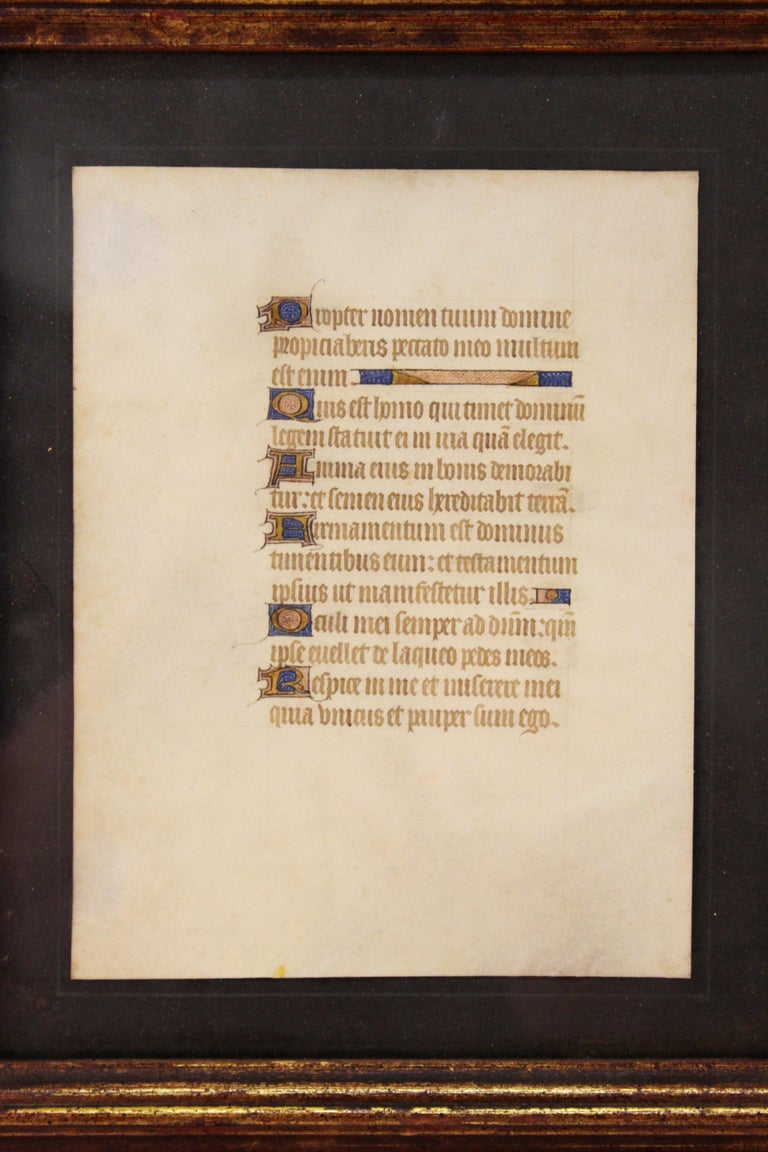 Propter nomen tuum domine
propiciaberis peccato meo multum
est enim.
Quis est homo qui timet dominū
legem statuit ei in uia quā elegit.
Anima eius in bonis demorabi
tur: et semen eius hereditabit terrā.
Firmamentum est dominus
timentibus eum: et testamentum
ipsius ut manifestetur illis.
Oculi mei semper ad dūm: qm̄
ipse euellet de laqueo pedes meos.
Respice in me et miserere mei
quia vnicus et pauper sum ego.